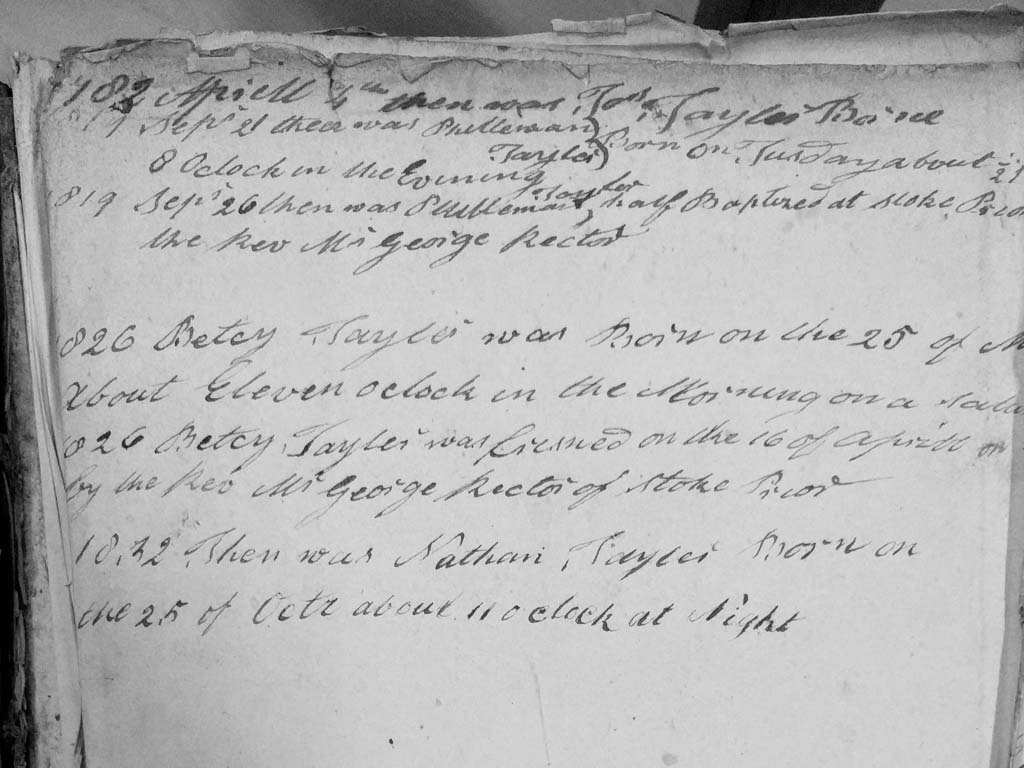 Aprell 4th then was Jos. Tayler Borne
819 Sepr 21 then was Philleman Tayler Born on Tusday about 1/2
8 Oclock in the Evining
819 Sepr 26 then was Philleman Tayler half Baptized at Stoke Prior
the Rev Mr George Rector
826 Betcy Tayler was Born on the 25 of M
About Eleven oclock in the Morning on a Satu
826 Betcy Tayler was Cresned on the 16 of Aprill on
by the Rev Mr George Rector of Stoke Prior
1832 Then was Nathan Tayler Born on
the 25 of Octr about 11 oclock at Night